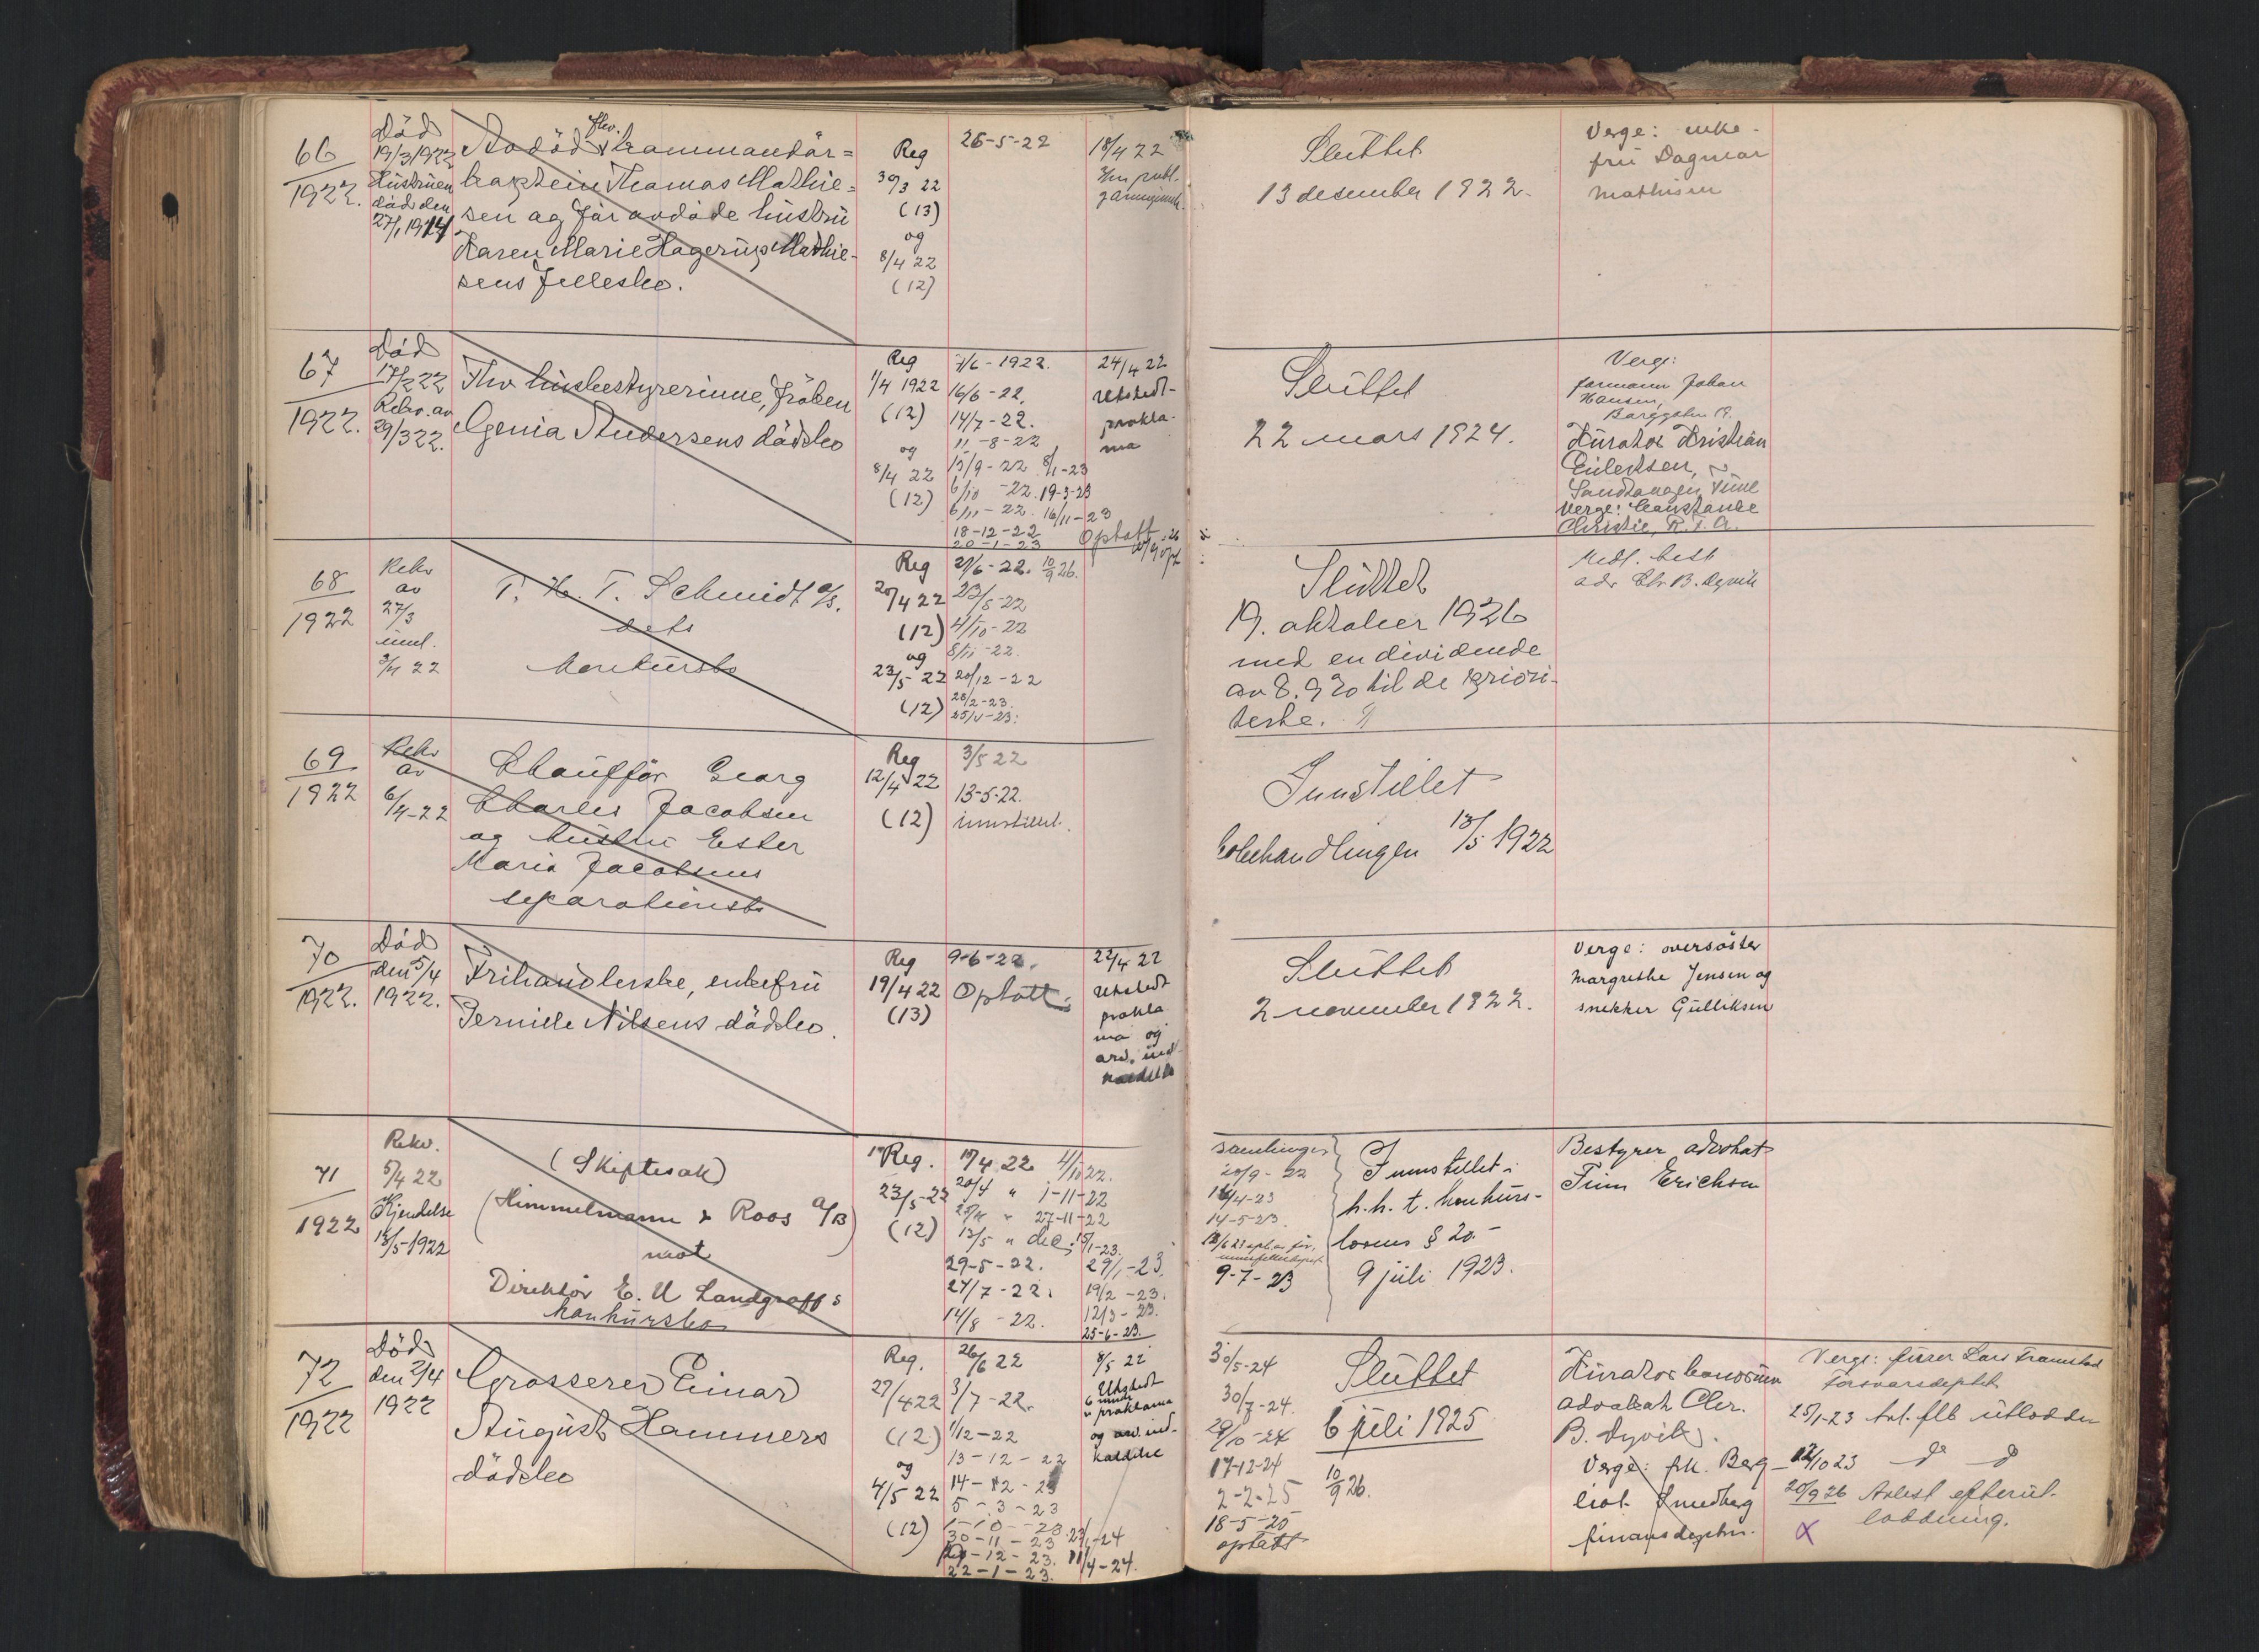 66
1922.
Död
19/3 1922
Hustruen
död den
27/1 1914
Avdöd fhv. kommandör=
kaptein Thomas Mathie-
sen og før avdöde hustru
Karen Marie Hagerup Mathie-
sens fellesbo.
Reg
30/3 22
(13)
og
8/4 22
(12)
26-5-22
18/4 22
Slüttet
13 desember 1922.
Verge: enke-
frü Dagmar
Mathisen
67
1922.
Död
17/2 22
Rekv. av
29/3 22.
Fhv husbestyrerinne, fröken
Genia Andersens dödsbo
Reg
1/4 1922
(12)
og
8/4 22
(12)
7/6 - 1922.
16/6 - 22.
14/7 - 22.
11 - 8 - 22
15/9 - 22 8/1 - 23
6/10 - 22. 19-3-23
6/11 - 22. 16/11 - 23
18-12-22
20-1-23
Optatt
24/4 22
Utstedt-
prokla-
ma
Slüttet
22 mars 1924.
Verge:
formann Johan
Hansen,
Kürator Kristian
Verge: Constance
Christie, R.T.A.
68
1922
Rekv
av
27/3
iml.
3/4 22
T. H. T. Schmidt a/s.
dets
konkürsbo
Reg
20/4 22
(12)
og
23/5 22
(12)
21/6 - 22. 10/9 26.
23/8 - 22
4/10 - 22
8/11 - 22.
20/12 - 22
28/2 - 23.
Slüttet
19. oktober 1926
med en dividende
av 8.9 % til de uprióri-
terte.
Medl. best
adv Chr. B. Dyvik
69
1922
Rekv
av
6/4-22
Chaufför Georg
Charles Jacobsen
og hustru Ester
Maria Jacobsens
separationsbo
Reg
12/4 22
(12)
3/5 22
13-5-22.
innstillet.
Innstillet
bobehandlingen 13/5 1922
70
1922.
Död
den 5/4
1922.
Frihandlerske, enkefrü
Pernille Nilsens dödsbo.
Reg
19/4 22
(13)
9-6-22.
Optatt.
22/4 22
Utstedt
prokla
ma og
arv. ind-
kaldelse
Slüttet
2 november 1922.
Verge: oversöster
Margrethe Jensen og
snekker Gülliksen
71
1922
Rekv.
5/4 22
Kjendelse
18/5-1922
(Skiftesak)
(Himmelmann & Roos A/B)
mot
Direktör E. U Landgraffs
konkürsbo
Reg.
23/5-22
(12)
19/4 22 4/10 22.
20/4 " 1-11-22
25/4 " 27-11-22
13/5 " dec; 15/1-23.
29-5-22. 29/1-23.
27/7-22. 19/2-23.
14/8-22. 12/3-23.
25-6-23.
samlinger
20/9-22
14-5-23.
9-7-23
Innstillet i
h.h. t. konkürs-
lovens § 20.-
9 jüli 1923.
Bestyrer advokat
Finn Erichsen
72
1922
Död
den 2/4
1922
Grosserer Einar
August Hammers
dödsbo
Reg.
27/4 22
(12)
og
4/5 22
(12)
26/6 22
3/7-22.
1/12-22
13-12-22
5-3-23
1-10-23
30-11-23
22-1-23.
11/4-24.
8/5 22
Utstedt
6 mndr
proklama
og arv. ind-
kaldelse
30/5-24
30/7-24.
29/10-24
17-12-24
2-2-25
18-5-25
optatt
Slüttet
6 jüli 1925
10/9 26.
Kürator bonorum
advokat Chr.
B. Dyvik.
Verge: frk. Berg-
liot Smedberg
finansdeptm.
Verge: fürer Lars Framstad
forsvarsdeptet
25/1-23 tvl. flb ütlodden
12/10 23 do do
20/9 26 Avlest efterüt-
loddning.
X